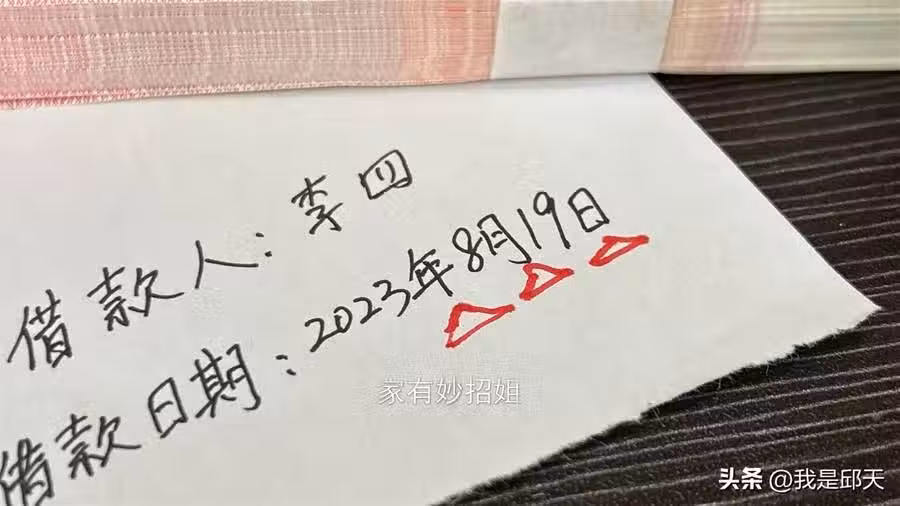 借款人：李四
借款日期：2023年8月19日
家有妙招姐
头条 @我是邱天